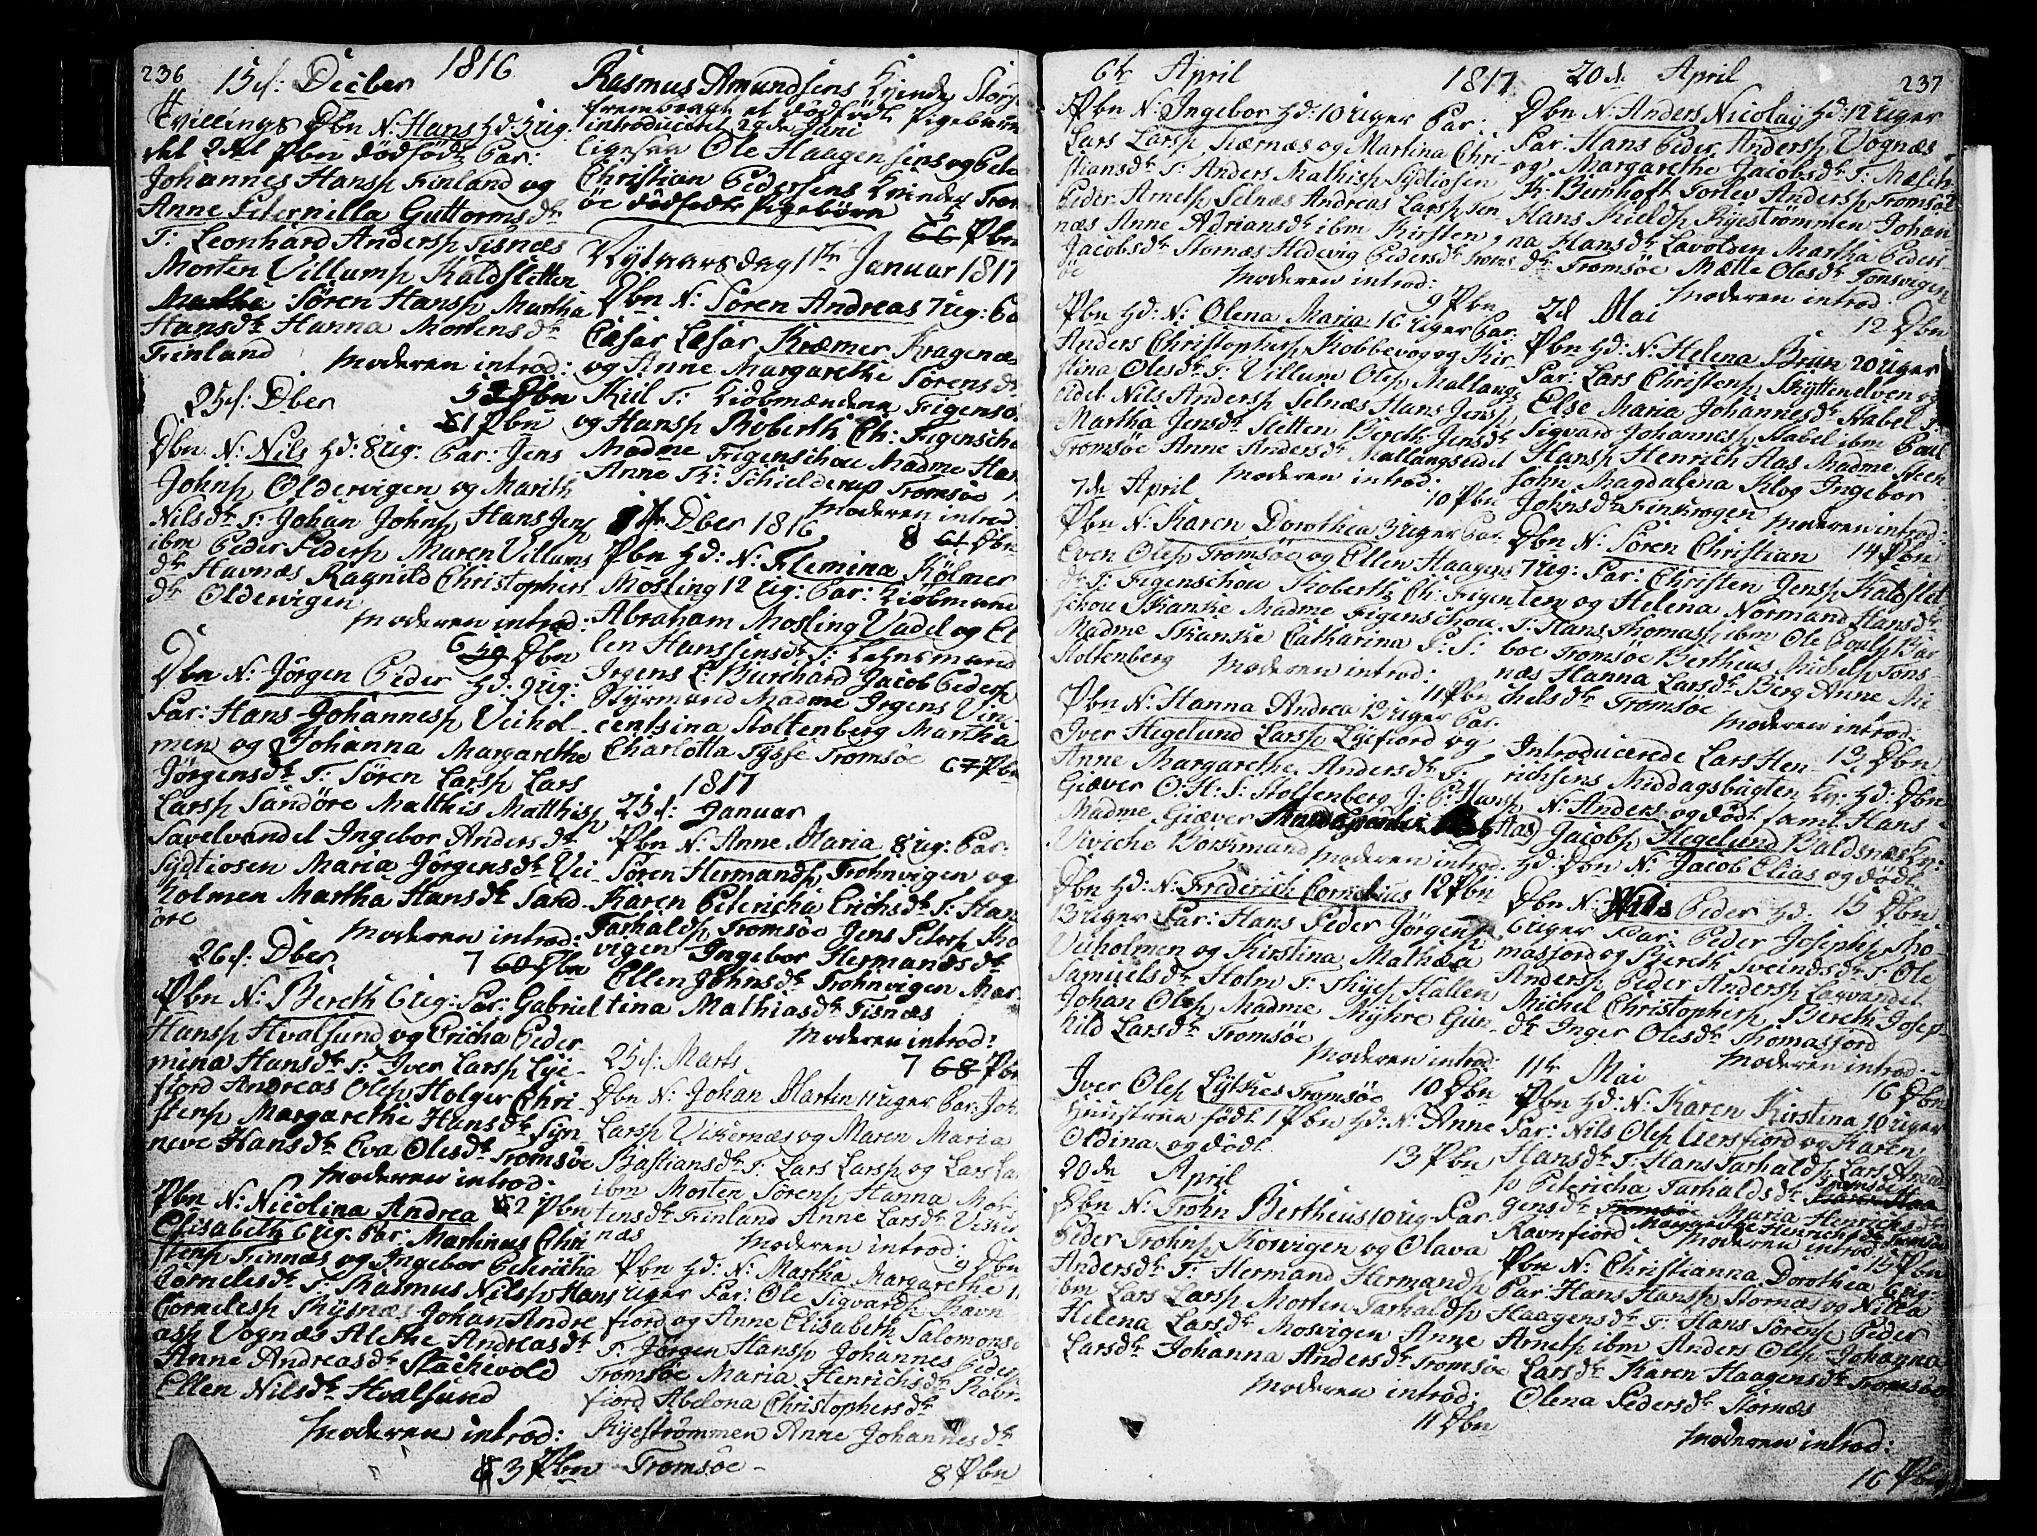 236
15d: Decber 1816
Tvillings Dbn N: Hans hd: 3 ug.
det 2det Pbn dødfødt Par:
Johannes Hansp Finland og
Anne Peternilla Guttormsdr
T: Leonhard Andersp Tisnæs
Morten Villumsp Kaldsletten
Søren Hansp Martha
Hansdr Hanna Mortensdr
Finland Moderen introd:
Dbn
25d: Dber
61 Pbn
Dbn N: Nils hd: 8 ug: Par: Jens
Johnsp Oldervigen og Marith
Nilsdr T: Johan Johnsp Hans Jensp
ibm Peder Pedersp Maren Villums
dr Havnæs Ragnild Christophers
dr Oldervigen
Moderen introd:
6 59 Dbn
Dbn N: Jørgen Peder hd: 9 ug:
Par: Hans Johannesp Veihol-
men og Johanna Margarethe
Jørgensdr T: Søren Larsp Lars
Larsp Sandøre Matthis Matthisp
Tavelvandet Ingebor Andersdr
Sydtiosen Maria Jørgensdr Vei-
holmen Martha Hansdr Sand-
øre
Moderen introd:
26d: Dber 7 60 Dbn
Pbn N: Bereth 6 ug: Par: Gabriel
Hansp Hvalsund og Ericha Peder-
mina Hansdr T: Iver Larsp Lye-
fiord Andreas Olesp Holger Chri-
stensp Margarethe Hansdr Syn-
neve Hansdr Eva Olesdr Tromsøe
Moderen introd:
Pbn N: Nicolina Andrea 62 Pbn
Elisabeth 6 ug: Par: Martinus Chri
stensp Finnæs og Ingebor Petericha
Cornelisdr T: Rasmus Nilsp Hans
Cornelesp Skysnæs Johan Andre
asp Vognæs Alethe Andreasdr
Anne Andreasdr Stachevold
Ellen Nilsdr Hvalsund
Moderen introd:
63 Pbn
Rasmus Amundsens Kvinde Stors
frembragt et dødfødt Pigebarn
introducert 29de Juni
ligesaa Ole Haagensens og Pete
Christian Pedersens Kvinder Trom
øe dødfødte Pigebørn
66 Pbn
Nytaarsdag 1te Januar 1817
Dbn N: Søren Andreas 7 ug: Pa
Cæsar Læsar Kræmer Kragenæs
og Anne Margarethe Sørensdr
Kiil T: Kiøbmændene Figenscho
og Hansp Roberth Ch: Figenscho
Madme Figenschou Madme Han
Anne K: Schielderup Tromsøe
Moderen introd:
Dber 1816 8 61 Dbn
Pbn hd: N: Flemina Kølmer
Mosling 12 ug: Par: Kiøbmand
Abraham Mosling Vadel og El
len Hanssensdr T: Lehnsmand
Irgens L: Burchard Jacob Peders
Styrmand Madme Irgens Vin-
centsina Stoltenberg Martha
Charlotta Fysse Tromsøe 67 Pbn
1817
25d: Januar
Pbn N: Anne Maria 8 ug: Par:
Søren Hermandsp Trohnvigen og
Karen Petericha Erichsdr T: Hans
Tarhaldsp Tromsøe Jens Petersp Tro
vigen Ingebor Hermandsdr
Ellen Johnsdr Trohnvigen Mar-
tina Mathiasdr Tisnæs
Moderen introd:
25d: Marts 7 68 Pbn
Dbn N: Johan Martin 11 uger Par: Joh
Larsp Vikernæs og Maren Maria
Bastiansdr T: Lars Larsp og Lars La
ibm Morten Sørensp Hanna Mor-
tensdr Finland Anne Larsdr Viker
næs Moderen introd:
9 Dbn
Pbn hd: N: Martha Margarethe 11
uger Par: Ole Sigvardsp Ravn
fiord og Anne Elisabeth Salomons
T: Jørgen Hansp Johannes Pedersp
Tromsøe Maria Henrichsdr Ravn
fiord Abelona Christophersdr
Ryestrømmen Anne Johannesdr
Tromsøe- 8 Pbn
6te April 1817
Pbn N: Ingebor hd: 10 uger Par:
Lars Larsp Kiærnæs og Martina Chri-
stiansdr T: Anders Mathisp Sydtiosen
Peder Arnetsp Selnæs Andreas Larsp Sen
næs Anne Adriansdr ibm Kirsten
Jacobsdr Stornæs Hedevig Pedersdr Troms
øe Moderen introd:
9 Pbn
Pbn hd: N: Olena Maria 16 uger Par.
Anders Christophersp Kobbevog og Kir-
stina Olesdr T: Villum Olesp Mallangs
eidet Nils Andersp Selnæs Hans Jensp
Martha Jensdr Sletten Bereth Jensdr
Tromsøe Anne Andersdr Mallangseidet
Moderen introd:
7de April 10 Pbn
Pbn N: Karen Dorothea 3 uger Par.
Even Olesp Tromsøe og Ellen Haagens
dr T: Figenschou Roberth Ch: Figen
schou Skanke Madme Figenschou
Madme Skanke Catharina P: S:
Stoltenberg Moderen introd:
11 Pbn
Pbn N: Hanna Andrea 13 uger Par.
Iver Hegelund Larsp Lyefiord og
Anne Margarethe Andersdr T:
Giæver O: H: S: Stoltenberg J: P: Hansp
Madme Giæver
Viviche Borkmand Moderen introd.
Dbn hd: N: Frederich Cornelius 12 Pbn
13 uger Par: Hans Peder Jørgensp
Veiholmen og Kirstina Mathea
Samuelsdr Holm T: Skyesp Hallen
Johan Olesp Madme Kyhre Gun-
hild Larsdr Tromsøe
Moderen introd:
Iver Olesp Lytkies Tromsøe 10 Dbn
Huustrue født 1 Pbn hd: N: Anne
Oldina og dødt
13 Pbn
20de April
Dbn N: Trohn Bertheus 10 ug: Par.
Peder Trohnsp Kosvigen og Olava
Andersdr T: Hermand Hermandsp
ibm Lars Larsp Morten Tarhaldsp
Helena Larsdr Mosvigen Anne
Larsdr Johanna Andersdr Tromsøe
Moderen introd:
11 Dbn
20de April 237
Dbn N: Anders Nicolay hd: 12 uger
Par: Hans Peder Andersp Vognæs
og Margarethe Jacobsdr T: Mæsch
R: Bernhoft Torlev Andersp Tromsøe
Hans Kieldsp Ryestrømmen Johan-
na Hansdr Lavolden Martha Peders-
dr Tromsøe Mætte Olesdr Tonsvigen
Moderen introd.
2d Mai 12 Dbn
Pbn hd: N: Helena Brun 20 uger
Par: Lars Christensp Skyttenelven og
Else Maria Johannesdr Habel T:
Sigvard Johannesp Habel ibm Paul
Hansp Henrich Aas Madme Steen-
sohn Magdalena Klog Ingebor
Johnsdr Finkrogen Moderen introd:
14 Pbn
Dbn N: Søren Christian
7 ug: Par: Christen Jensp Kaldslet
ten og Helena Normand Hansdr
T: Hans Thomasp ibm Ole Poulsp Bar
boe Tromsøe Bertheus Michelsp Tons-
næs Hanna Larsdr Berg Anne Mi
chelsdr Tromsøe
Moderen introd:
Introducerede Lars Hen- 13 Dbn
richsens Middagsbugten Kv: hd: Dbn
N: Anders og dødt samt Hans
Jacobsp Hegelund Baldsnæs Kv:
hd: Dbn N: Jacob Elias og dødt
Dbn N: Nils Peder hd. 15 Dbn
6 uger Par: Peder Josephsp Tho
masfiord og Bereth Sveindsdr T: Ole
Andersp Peder Andersp Lavvandet
Michel Christophersp Bereth Josep-
dr Inger Olesdr Thomasfiord
Moderen introd:
11te Mai 16 Dbn
Pbn hd: N: Karen Kirstina 10 uger
Par: Nils Olesp Ulersfiord og Karen
Hansdr T: Hans Tarhaldsp Lars Arnd
Petericha Tarhaldsdr
gensdr Maria Henrichsdr
Ravnfiord Margrethe Henrichsdr Tromsøe
Moderen introd:
15 Pbn
Pbn N: Christianna Dorothea 6 ug:
Par: Hans Hansp Stornæs og Nilla
Haagensdr T: Hans Sørensp Peder
Arnetsp ibm Anders Olesp Johanna
Larsdr Karen Haagensdr Tromsøe
Olena Pedersdr Stornæs
Moderen introd:
16 Pbn